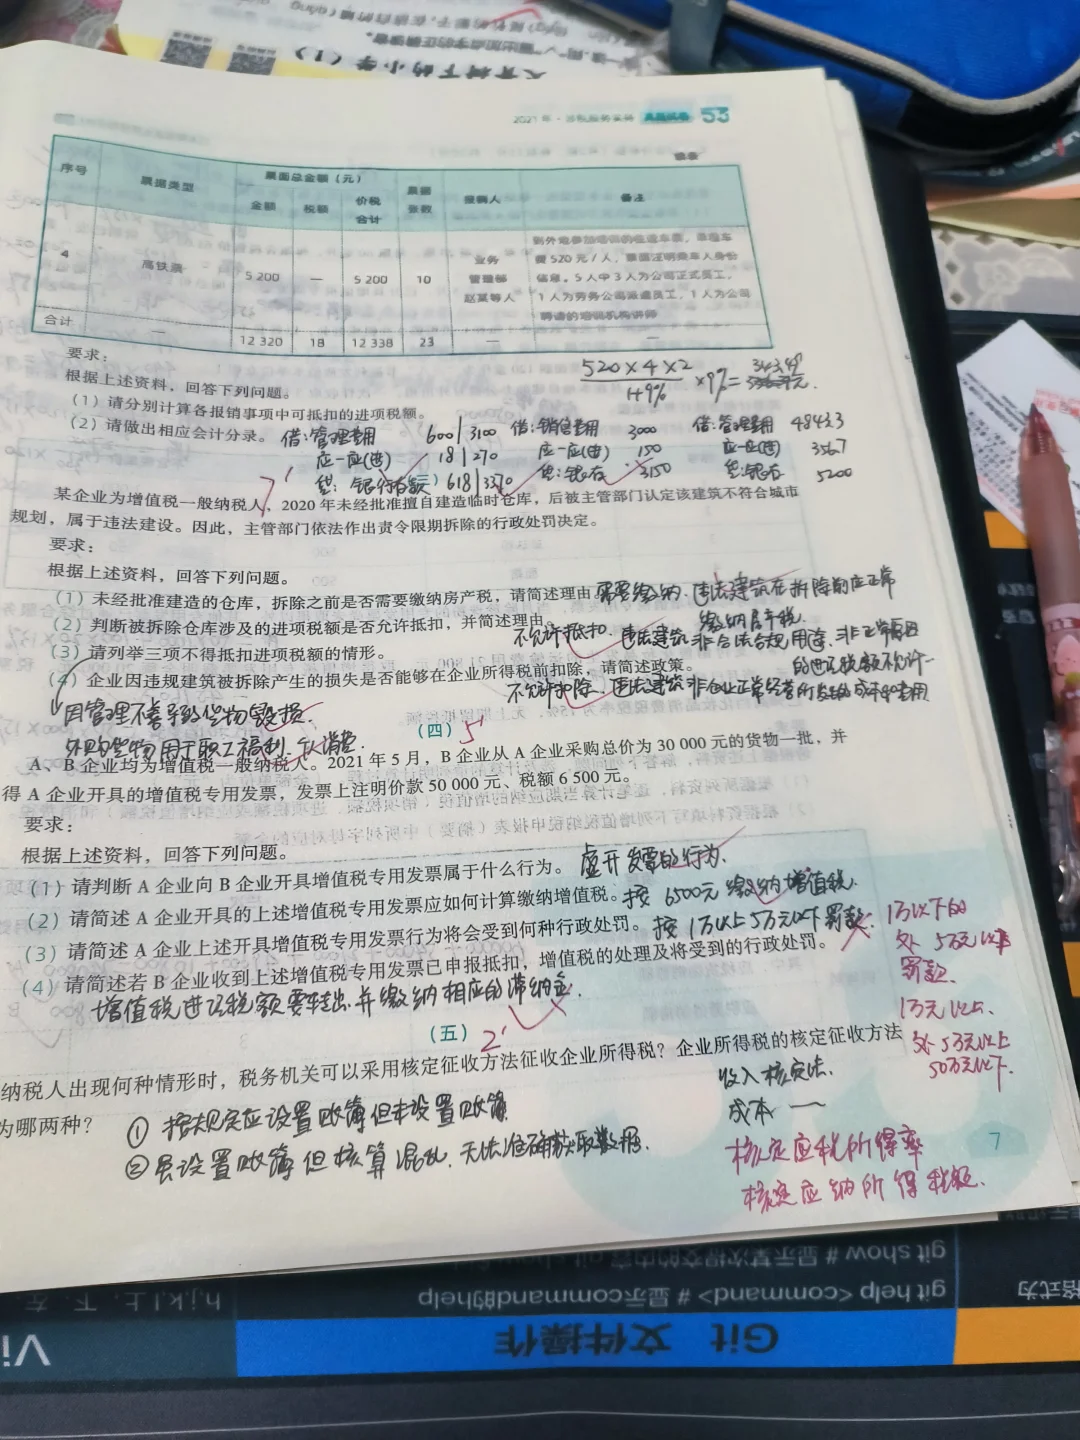 2021 年·涉税服务实务 真题试卷 53
续表
序号 票据类型 票面总金额（元） 票据张数 报销人 备注
金额 税额 价税合计
4 高铁票 5 200 — 5 200 10 业务管理部赵某等人
到外地参加培训的往返车票，单程车
费 520 元 / 人，票面注明乘车人身份
信息。5 人中 3 人为公司正式员工，
1 人为劳务公司派遣员工，1 人为公司
聘请的培训机构讲师
合计 — 12 320 18 12 338 23 — —
要求：
根据上述资料，回答下列问题。
（1）请分别计算各报销事项中可抵扣的进项税额。
520×4×2
1+9%
×9%=343.49元.
（2）请做出相应会计分录。
借:管理费用 600 3100 借:销售费用 3000 借:管理费用 4843.3
应-应(进) 18 270 应-应(进) 150 应-应(进) 356.7
贷: 银行存款 618 3370 贷:银存 3150 贷:银存 5200
某企业为增值税一般纳税人，2020 年未经批准擅自建造临时仓库，后被主管部门认定该建筑不符合城市
规划，属于违法建设。因此，主管部门依法作出责令限期拆除的行政处罚决定。
要求：
根据上述资料，回答下列问题。
（1）未经批准建造的仓库，拆除之前是否需要缴纳房产税，请简述理由
需要缴纳. 违法建筑在拆除前应正常
缴纳房产税.
（2）判断被拆除仓库涉及的进项税额是否允许抵扣，并简述理由。
不允许抵扣. 违法建筑非合法合规用途.非正常原因
的进项税额不允许-
（3）请列举三项不得抵扣进项税额的情形。
（4）企业因违规建筑被拆除产生的损失是否能够在企业所得税前扣除，请简述政策。
不允许扣除. 违法建筑非企业正常经营所发生的成本和费用.
因管理不善导致货物毁损.
外购货物用于职工福利.个人消费.
（四） 5'
A、B 企业均为增值税一般纳税人。2021 年 5 月，B 企业从 A 企业采购总价为 30 000 元的货物一批，并
得 A 企业开具的增值税专用发票，发票上注明价款 50 000 元、税额 6 500 元。
要求：
根据上述资料，回答下列问题。
（1）请判断 A 企业向 B 企业开具增值税专用发票属于什么行为。 虚开发票的行为.
（2）请简述 A 企业开具的上述增值税专用发票应如何计算缴纳增值税。 按 6500元 缴纳增值税.
（3）请简述 A 企业上述开具增值税专用发票行为将会受到何种行政处罚。 按 1万以上5万元以下罚款.
（4）请简述若 B 企业收到上述增值税专用发票已申报抵扣，增值税的处理及将受到的行政处罚。
增值税进项税额要转出.并缴纳相应的滞纳金.
1万以下的
处 5万元以下
罚款.
1万元以上.
处5万元以上
50万元以下.
（五） 2'
纳税人出现何种情形时，税务机关可以采用核定征收方法征收企业所得税？企业所得税的核定征收方法
为哪两种？
① 按规定应设置账簿但未设置账簿
② 虽设置账簿但核算混乱.无法准确获取数据.
收入核定法.
成本 —
核定应税所得率
核定应纳所得税额.
7
git show # 显示某次提交的内容
git help <command> # 显示command的help
h,j,k,l 上，下，左，
Git 文件操作
Vi